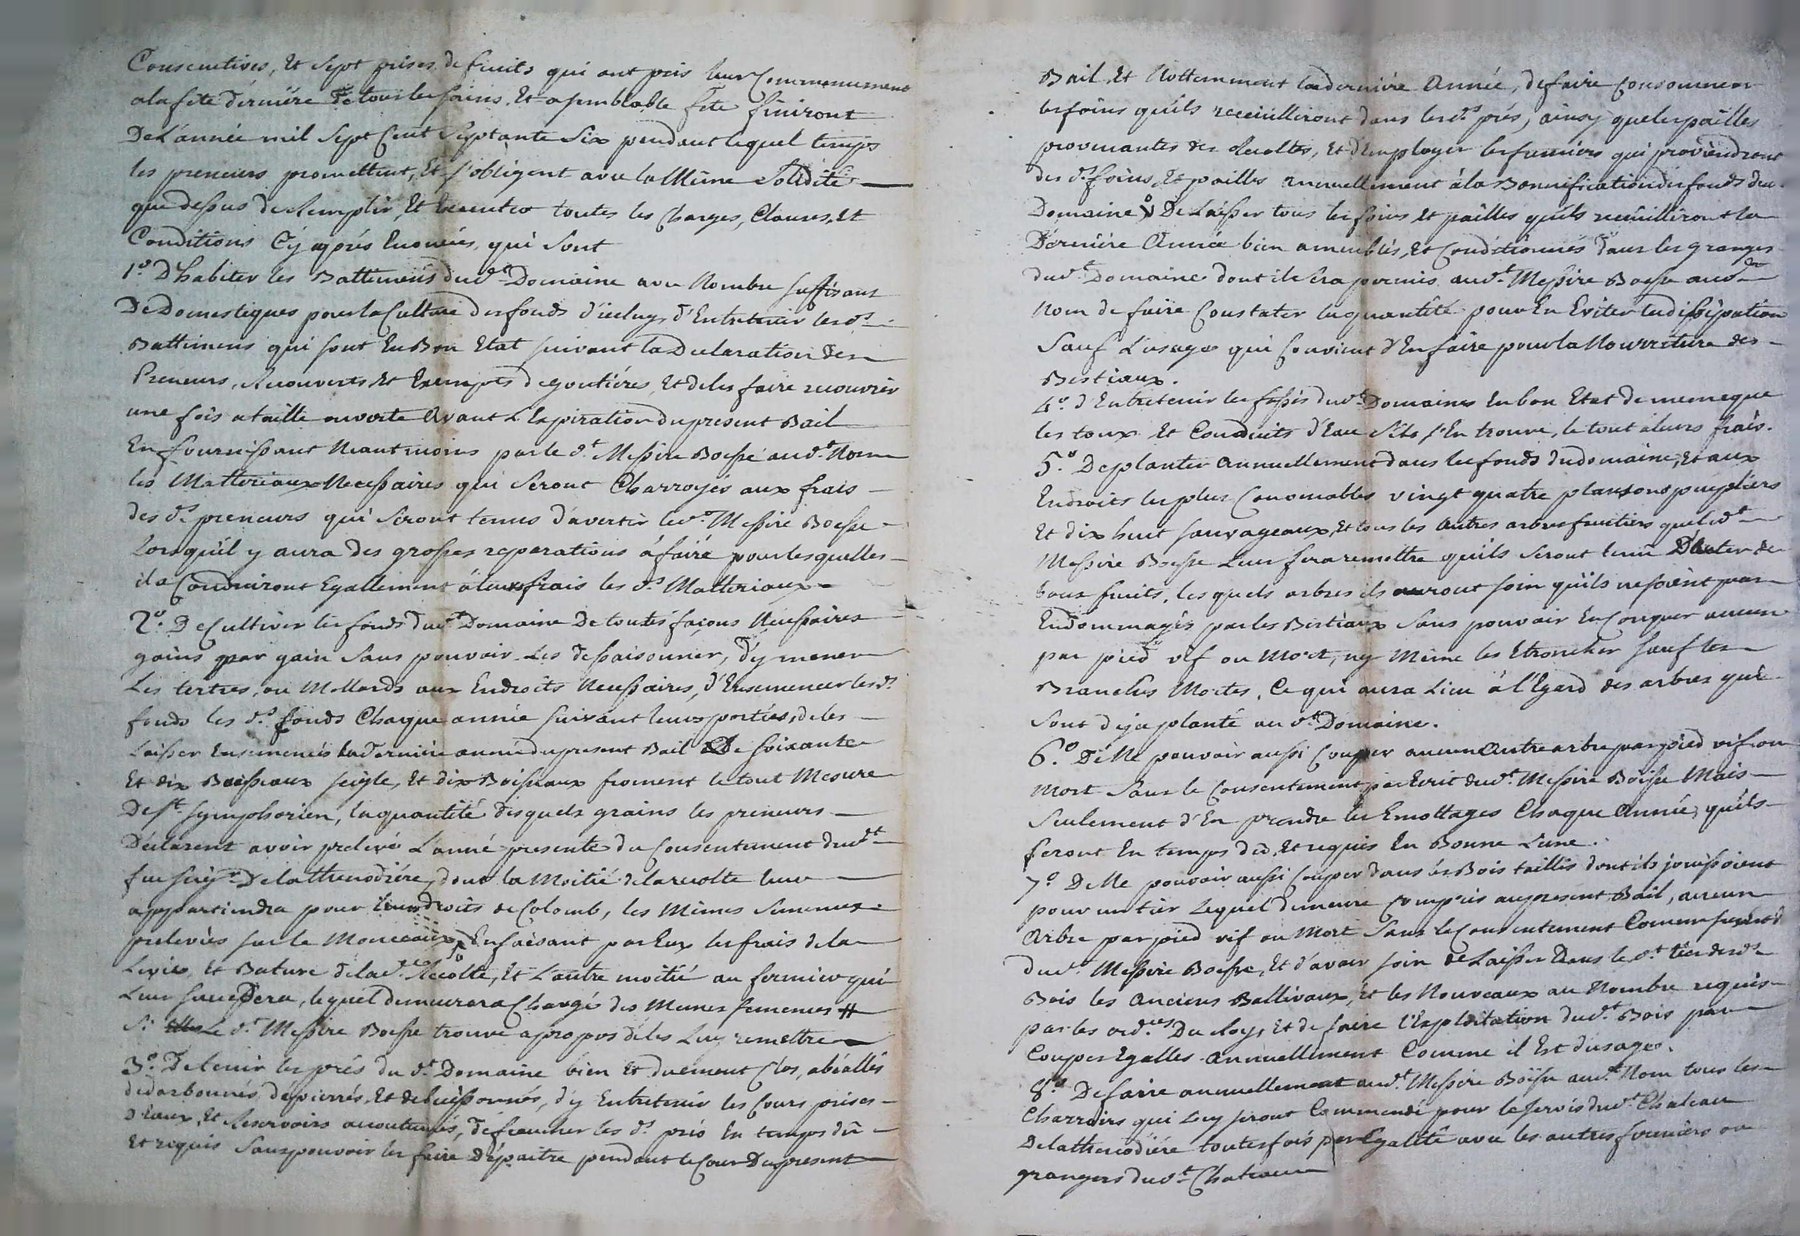 Consecutives, Et Sept prises de fruits qui ont pris leur Commencement
a la fete derniere De tous les saints, Et a semblable fete finiront
De L'année mil Sept Cent Septante Six pendant lequel temps
les preneurs promettent, Et s'obligent avec la Même Solidité
que dessus de Remplir, Et Executer toutes les Charges, Clauses, Et
Conditions Cy après Enoncées, qui Sont
1.º D'habiter les Battiments dud.t Domaine avec Nombre suffisant
De Domestiques pour la Culture des fonds d'icelui, d'Entretenir les d.s
Battimens qui sont En Bon Etat suivant la Declaration des
Preneurs, Recouverts Et Exempts de goutiéres, Et de les faire recouvrir
une fois a taille ouverte Avant L'Expiration du present Bail
En fournissant Neantmoins par le d.t Messire Boesse aud.t Nom
les Matteriaux Necessaires qui Seront Charroyés aux frais
des d.s preneurs qui Seront tenus d'avertir led.t Messire Boesse
Lorsqu'il y aura des grosses reparations à faire pour lesquelles
ils Conduiront Egallement à leurs frais les d.s Matteriaux
2.º De Cultiver les fonds dud.t Domaine De toutes façons Necessaires
gains par gain Sans pouvoir Les dessaisonner, d'y mener
Les tertres, ou Mollards aux Endroits Necessaires, d'Ensemencer les d.s
fonds les d.s fonds Chaque année suivant leurs portées, de les
Laisser Ensemencés la derniere année du present Bail De soixante
Et dix Boisseaux seigle, Et dix Boisseaux froment le tout Mesure
De S.t Symphorien, la quantité desquels grains les preneurs
Déclarent avoir prelevé L'année presente du Consentement dud.t
feu seig.r De lathenodiére, dont la Moitié de la recolte leur
appartiendra pour leurs droits de Colomb, les Mêmes Semences
prelevées sur le Monceaux, En faisant par Eux les frais de la
Levée, Et Bature de lad.e Récolte, Et L'autre moitié au fermier qui
Leur succedera, lequel demeurera Chargé des Memes semences #
Si Le d.t Messire Boesse trouve apropos de les Luy remettre
3.º De tenir les prés du d.t Domaine bien Et duement Clos, abéallés
dedarbonnés, dépierrés, Et debuissonnés, d'y Entretenir les Cours, prises
d'Eaux, Et Reservoirs acoutumés, de faucher les d.s prés En temps dû
Et requis Sans pouvoir les faire dépaitre pendant le Cour Du present
Bail, Et Nottemment la derniére Année, de faire Consommer
les foins qu'ils recueilliront dans les d.s prés, ainsy que les pailles
provenantes des Recoltes, Et d'Employer les fumiers qui proviendront
des d.s foins, Et pailles annuellement à la Bonnification des fonds du
Domaine, De Laisser tous les foins, Et pailles qu'ils recüilliront la
Derniére Année bien ameublés, Et Conditionnés dans les granges
dud.t Domaine dont il sera permis aud.t Messire Boesse aud.t
Nom de faire Constater la quantité pour En Eviter la dissipation
Sauf L'usage qui Convient d'En faire pour la Nourriture des
Bestiaux.
4.º d'Entretenir les fossés dud.t Domaine En bon Etat de meme que
les toux Et Conduits d'Eau S'ils s'En trouve, le tout à leurs frais.
5.º De planter Annuellement dans les fonds du domaine, Et aux
Endroits les plus Convenables vingt quatre plansons peupliers
Et dix huit sauvageaux, Et tous les Autres arbres fruitiers que led.t
Messire Boesse Leur fera remettre qu'ils Seront tenu D'enter de
bons fruits, les quels arbres ils auront soin qu'ils ne soient pas
Endommagés par les Bestiaux Sans pouvoir En Couper aucun
par pied vif ou Mort, ny Même les Etroncher sauf les
Branches Mortes, Ce qui aura Lieu à l'Egard des arbres qui
Sont deja planté au d.t Domaine.
6.º De Ne pouvoir aussi Couper aucun Autre arbre par pied vif ou
Mort Sans le Consentement par Ecrit dud.t Messire Boësse Mais
Seulement d'En prendre les Emottages Chaque Année, qu'ils
feront En temps dû, Et requis En Bonne Lune.
7.º De Ne pouvoir aussi Couper dans les Bois taillis dont ils jouissoient
pour un tier Lequel demeure Compris au present Bail, aucun
Arbre par pied vif ou Mort Sans le Consentement Comme susdit
dud.t Messire Boesse, Et d'avoir soin de Laisser Dans le d.t tier desd.s
Bois les Anciens Ballivaux, Et les Nouveaux au Nombre requis
par les ord.ces Du Roy, Et de faire l'Exploitation dud.t Bois par
Coupes Egalles annuellement Comme il Est d'usage.
8.º De faire annuellement aud.t Messire Boësse aud.t Nom tous les
Charrois qui Luy seront Commandé pour le servis dud.t Chateau
De lathenodiére toutes fois par Egalité avec les autres fermiers ou
grangers dud.t Chateau